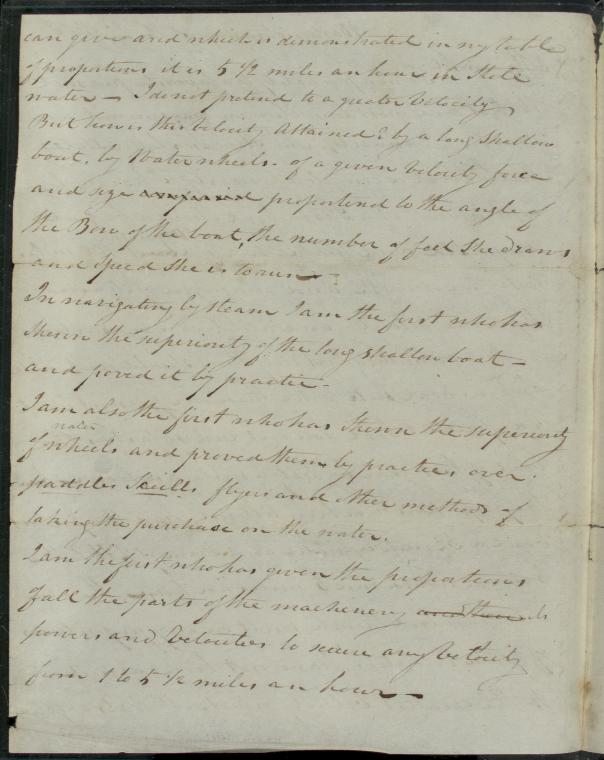 can give and which is demonstrated in my table
of proportions it is 5 1/2 miles an hour in Stile
water — I do not pretend to a greater Velocity
But how is this Velocity Attained? by a long Shallow
boat, by Water wheels of a given Velocity force
and size proportiond to the angle of
the Bow of the boat, the number of feet She draws
and Speed She is to run —
In navigating by steam I am the first who has
Shewn the superiority of the long shallow boat —
and poved it by practice —
I am also the first who has Shewn the superiority
water
of wheels and proved them by practice over
paddles Sculls flyers and other methods of
taking the purchase on the water.
I am the first who has given the proportions
of all the parts of the machenery and their
powers and Velocities to secure any Velocity
from 1 to 5 1/2 miles an hour —